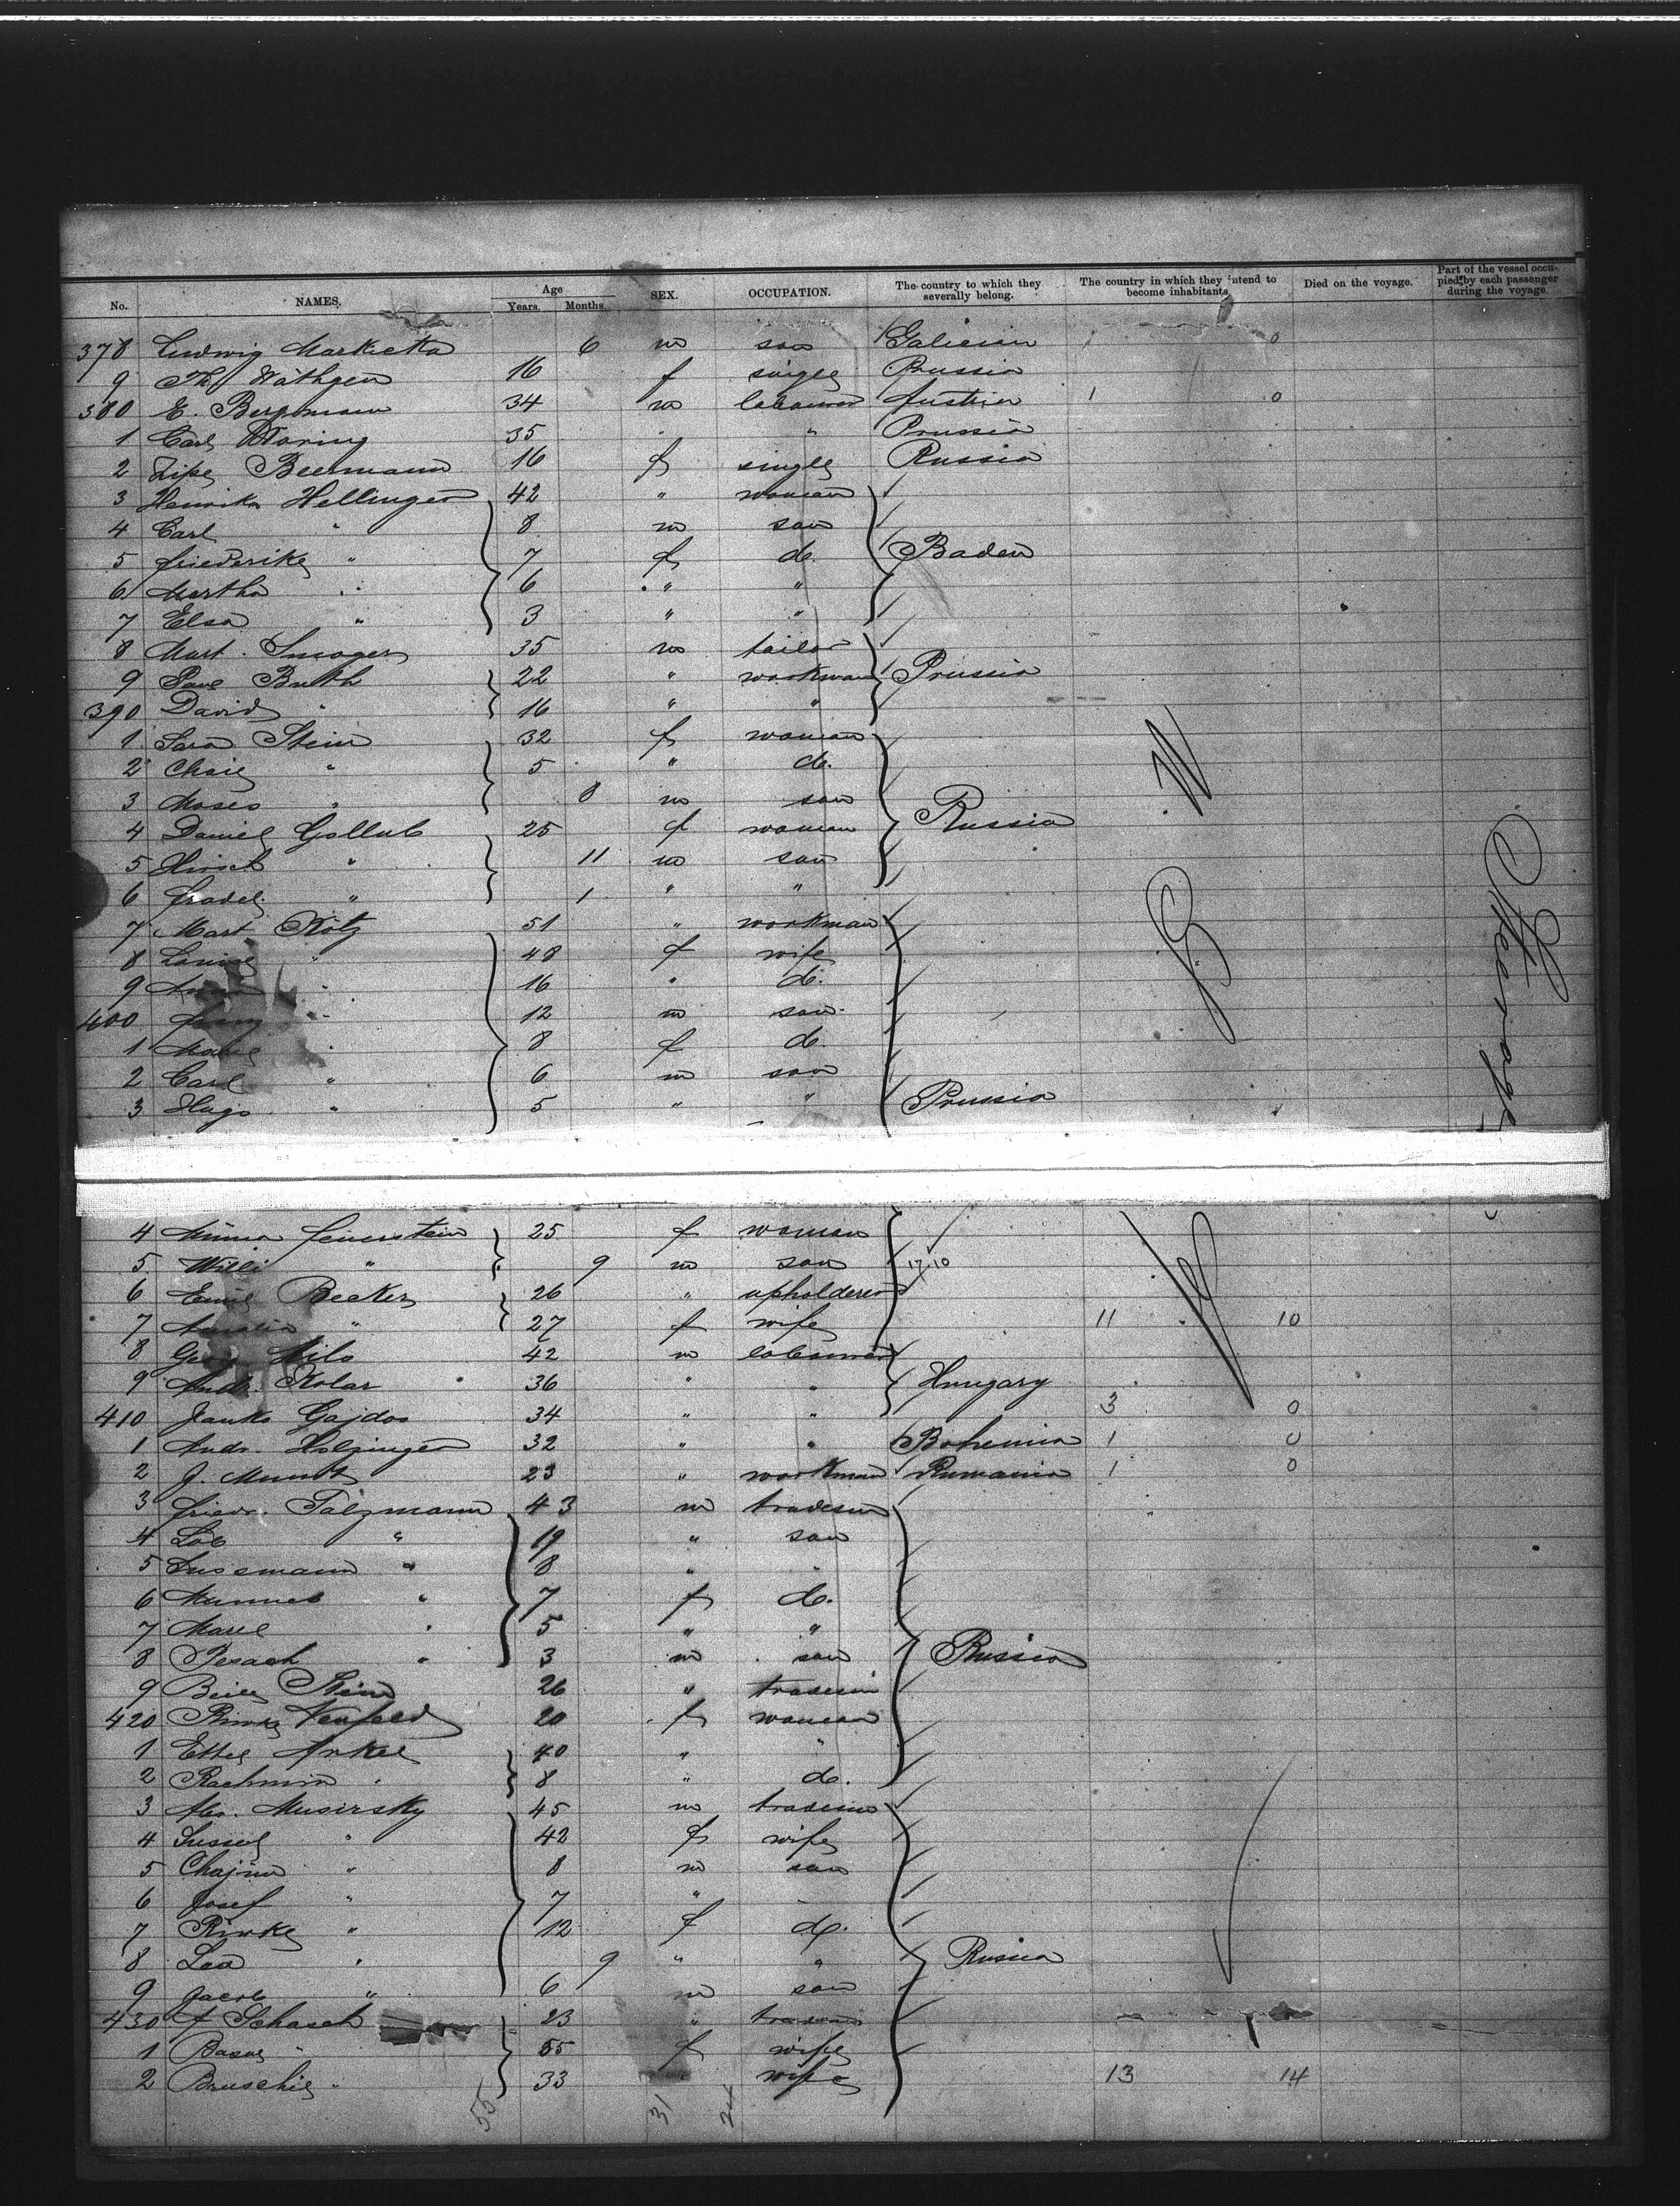 No. NAMES. Age Years. Months. SEX. OCCUPATION. The country to which they severally belong. The country in which they intend to become inhabitants. Died on the voyage. Part of the vessel occupied by each passenger during the voyage.
378 Ludwig Markicka 6 m son Galicien 1 0
9 Th. Wäthgen 16 f single Prussia
380 E. Bergmann 34 m labourer Austria 1 0
1 Carl 35 " Prussia
2 Zipe Beermann 16 f single Russia
3 Henrika Hellinger 42 " woman
4 Carl " 8 m son
5 Friederike " 7 f do. Baden
6 Martha " 6 " "
7 Elsa " 3 " "
8 Mart. 35 m tailor
9 Paul Buth 22 " workman Prussia
390 David " 16 " "
1 Sara Stein 32 f woman
2 Chaie " 5 " do.
3 Moses " 8 m son Russia
4 Daniel Gollub 25 f woman
5 Hirsch " 11 m son
6 Fradel " 1 " "
7 Mart. Kotz 51 " workman
8 Louise " 48 f wife Steerage
9 " 16 " do.
400 " 12 m son
1 Marie " 8 f do.
2 Carl " 6 m son
3 Hugo " 5 " " Prussia
4 Minna Feuerstein 25 f woman
5 Willi " 9 m son 17 10
6 Emil Becker 26 " upholderer
7 Amalia " 27 f wife 11 10
8 Georg Milo 42 m labourer
9 Andr. Kolar 36 " " Hungary
410 Janko Gajdos 34 " " 3 0
1 Andr. Holzinger 32 " " Bohemia 1 0
2 J. 23 " workman Rumania 1 0
3 Friedr. Talzmann 43 m tradesm
4 Lob " 19 " son
5 Sussmann " 8 " "
6 " 7 f do.
7 " 5 " "
8 Pesach " 3 m son Russia
9 Beile Stein 26 " tradesm
420 Rinke Neufeld 20 f woman
1 Ettel Ankel 40 " "
2 Rachmin " 8 " do.
3 Musirsky 45 m tradesm
4 Sussel " 42 f wife
5 Chajim " 8 m son
6 Josef " 7 "
7 Rinke " 12 f do.
8 Lea " 9 " " Russia
9 Jacob " 6 m son
430 Schasch 23 " tradesm
1 " 55 f wife
2 Bruschie " 33 " wife 13 14
55 31 24